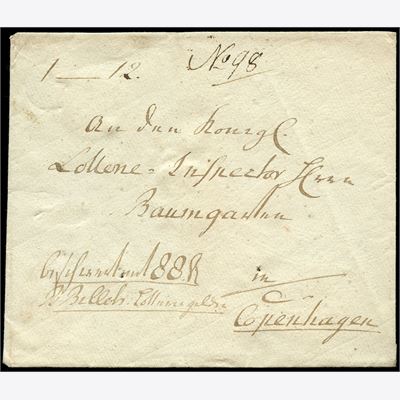 1 — 12. No 98
An den Königl.
Lotterie-Inspector Herrn
Baumgarten
88 R in
Lotteriegelder
Copenhagen